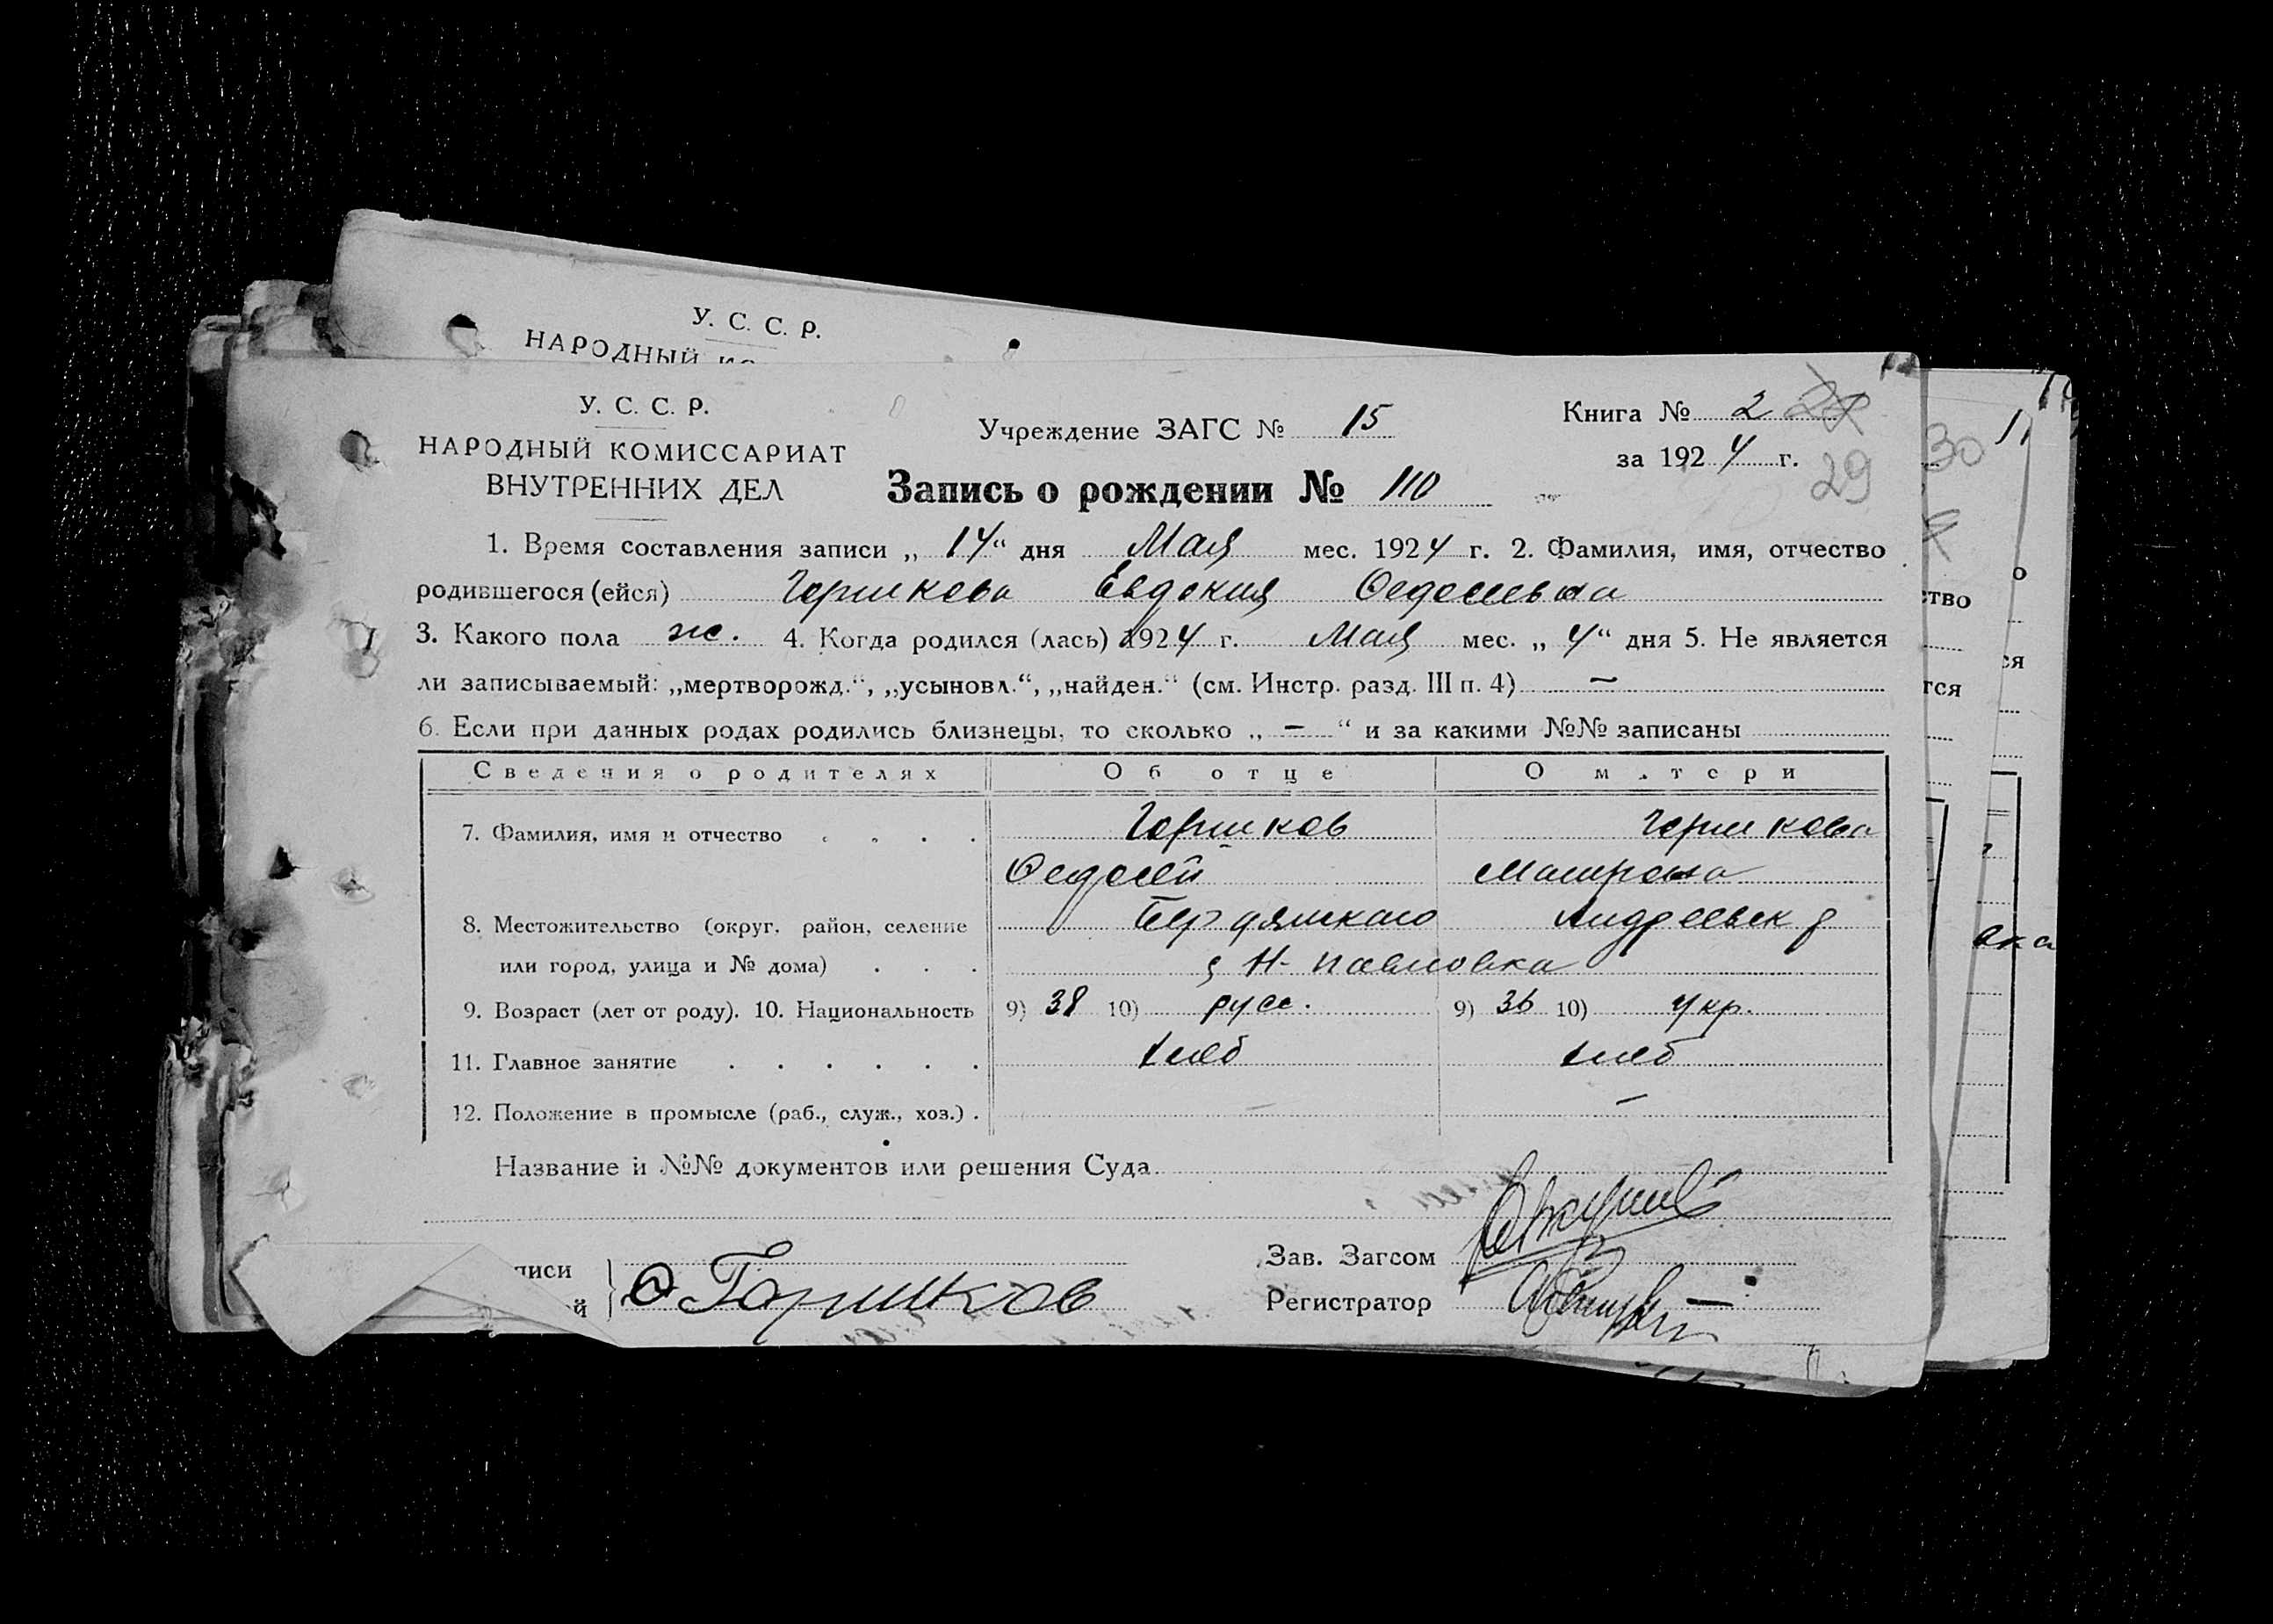 У. С. С. Р.
НАРОДНЫЙ
У. С. С. Р.
НАРОДНЫЙ КОМИССАРИАТ
ВНУТРЕННИХ ДЕЛ
Учреждение ЗАГС № 15
Книга № 2
за 1924 г.
29
30
Запись о рождении № 110
1. Время составления записи „ 14 “ дня Мая мес. 1924 г. 2. Фамилия, имя, отчество
родившегося (ейся) Горшкова Евдокия Федосеевна
3. Какого пола ж. 4. Когда родился (лась) 1924 г. Мая мес. „ 4 “ дня 5. Не является
ли записываемый: „мертворожд.“, „усыновл.“, „найден.“ (см. Инстр. разд. III п. 4) —
6. Если при данных родах родились близнецы, то сколько „ — “ и за какими №№ записаны
Сведения о родителях Об отце О матери
7. Фамилия, имя и отчество Горшков Горшкова
Федосей Матрона
8. Местожительство (округ, район, селение Бердянского Андреевск р
или город, улица и № дома) с Н-Павловка
9. Возраст (лет от роду). 10. Национальность 9) 38 10) русс. 9) 36 10) укр.
11. Главное занятие хлеб хлеб
12. Положение в промысле (раб., служ., хоз.) — —
Название и №№ документов или решения Суда
писи
й
Ф Горшков
Зав. Загсом
Регистратор